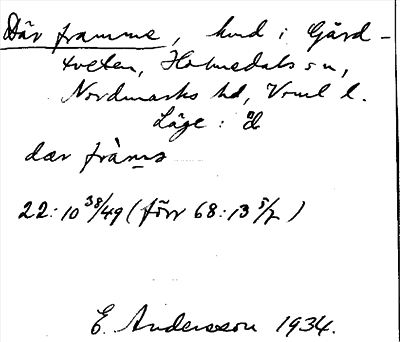 Där framme, hmd i Gård-
tveten, Holmedals sn,
Nordmarks hd, Vrml l.
Läge: d
dær fràms
22:10 38/49 (förr 68:13 5/7)
E. Andersson 1934.